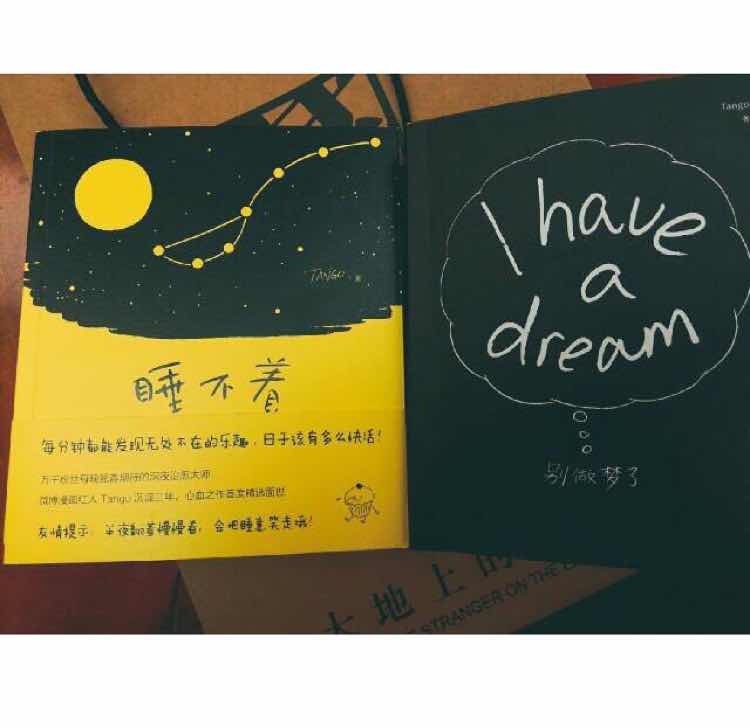 TANGO 著
睡不着
每分钟都能发现无处不在的乐趣，日子该有多么快活！
万千粉丝每晚翘首期待的深夜治愈大师
微博漫画红人 Tango 沉淀三年，心血之作首度精选面世
友情提示：半夜翻着慢慢看，会把睡意笑走哦！
Tango
著
I have
a
dream
别做梦了
大地上的
STRANGER ON THE